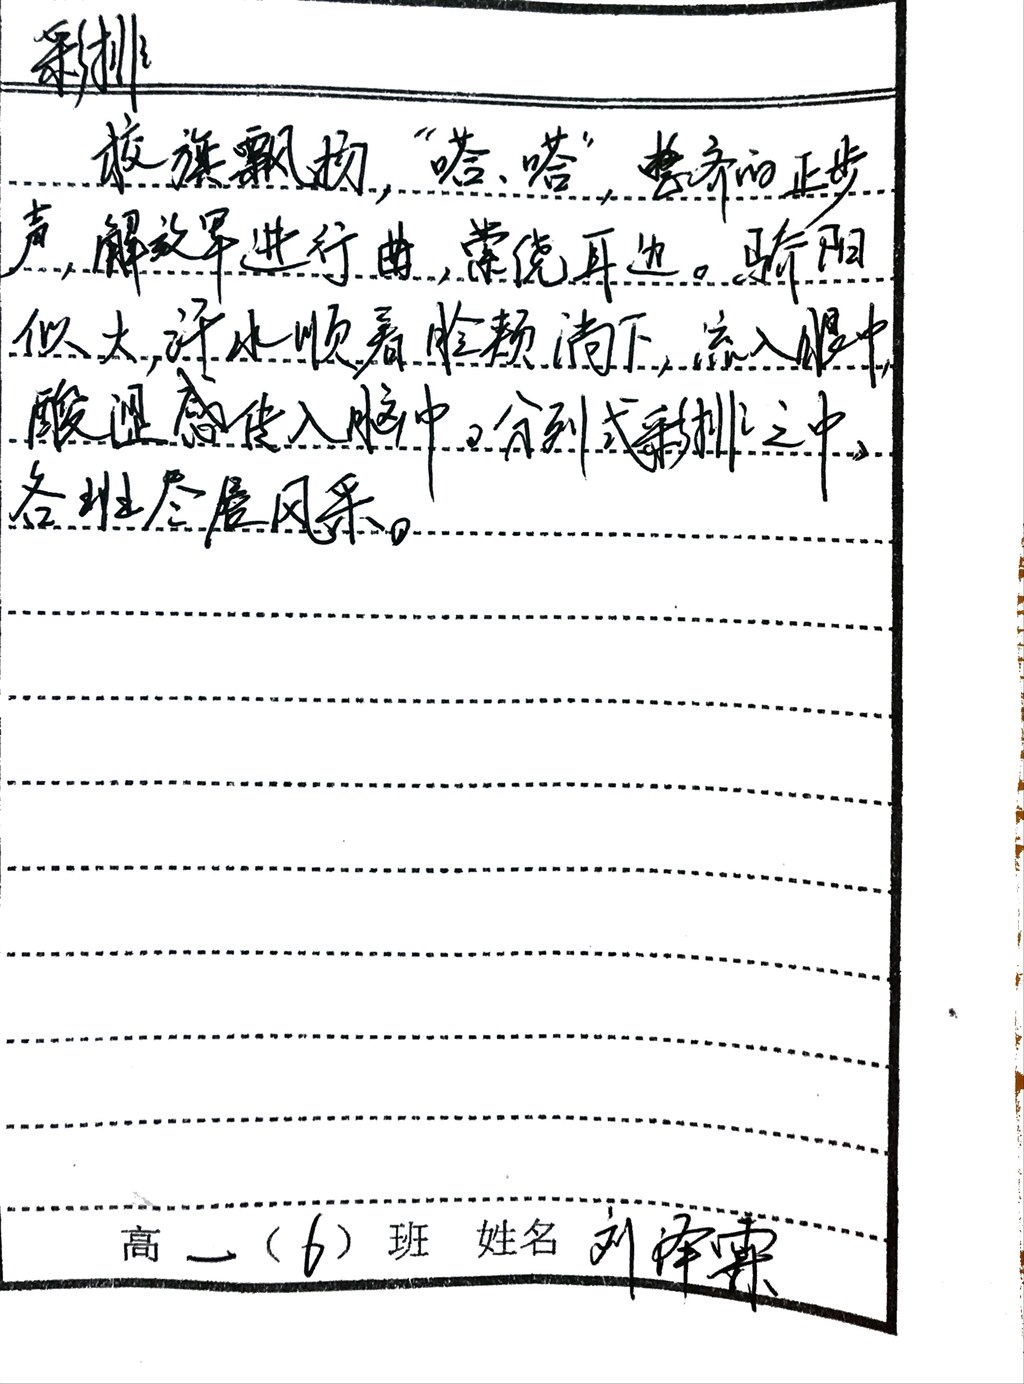 彩排
校旗飘扬，“嗒、嗒”，整齐的正步
声，解放军进行曲，萦绕耳边。骄阳
似火，汗水顺着脸颊淌下，流入眼中，
酸涩感传入脑中。分列式彩排之中，
各班尽展风采。
高一（6）班 姓名 刘泽霖